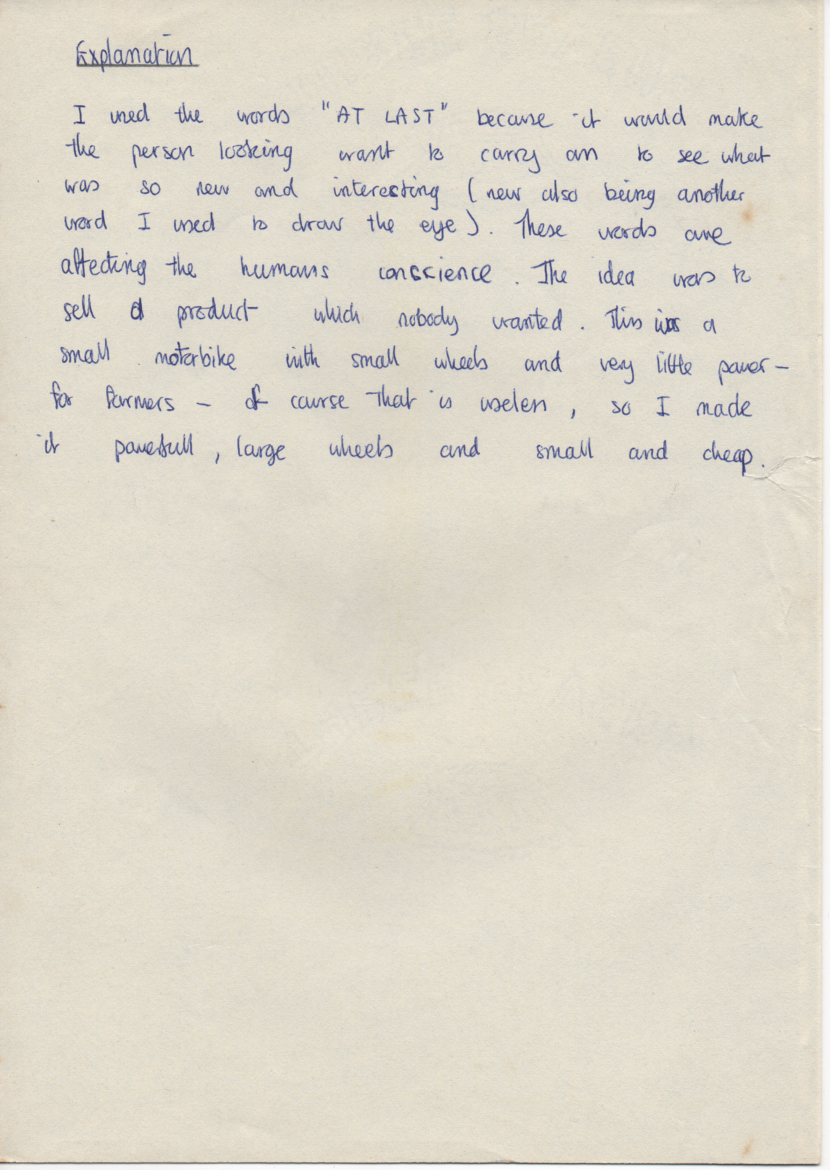 Explanation
I used the words "AT LAST" because it would make
the person looking want to carry on to see what
was so new and interesting (new also being another
word I used to draw the eye). These words are
affecting the humans conscience. The idea was to
sell a product which nobody wanted. This was a
small motorbike with small wheels and very little power-
for farmers - of course that is useless, so I made
it powerfull, large wheels and small and cheap.